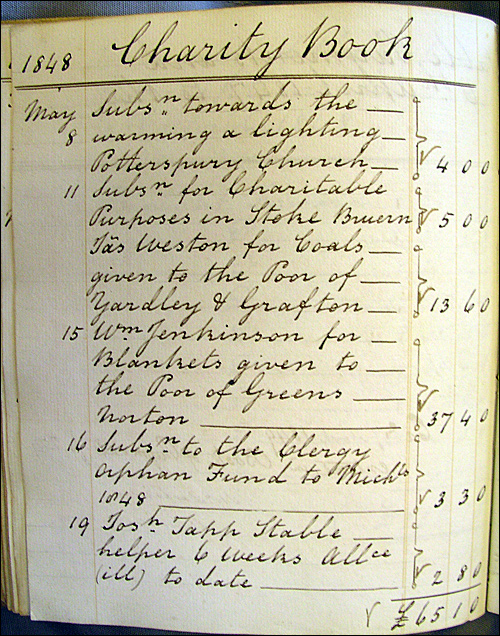 1848 Charity Book
May Subsn towards the
8 warming & lighting
Potterspury Church 4 0 0
11 Subsn for Charitable
Purposes in Stoke Bruern 5 0 0
Jas Weston for Coals
given to the Poor of
Yardley & Grafton 13 6 0
15 Wm Jenkinson for
Blankets given to
the Poor of Greens
norton 37 4 0
16 Subsn to the Clergy
Orphan Fund to Michs
1848 3 3 0
19 Josh Tapp Stable
helper 6 Weeks Allce
(ill) to date 2 8 0
£65 1 0